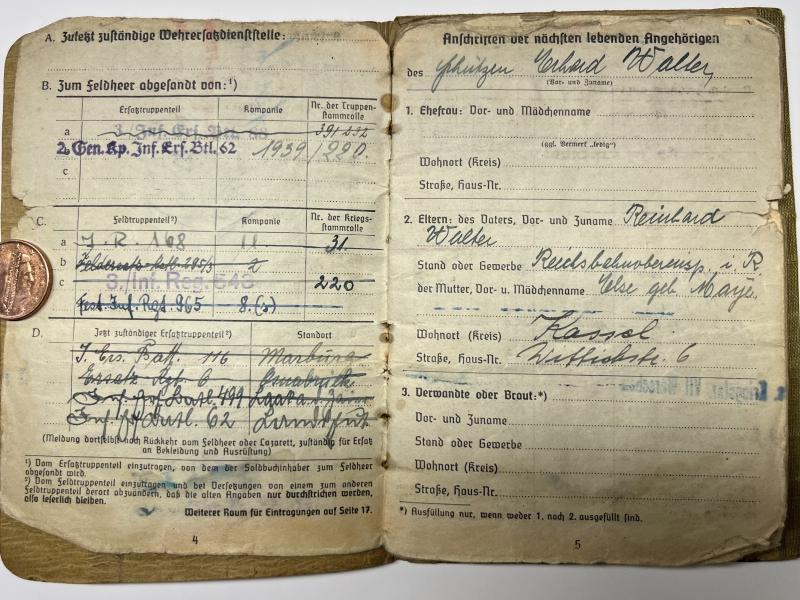 A. Zuletzt zuständige Wehrersatzdienststelle:
B. Zum Feldheer abgesandt von:¹)
Ersatztruppenteil Kompanie Nr. der Truppen-stammrolle
a 3. Inf. Ers. Btl.
2. Gen. Kp. Inf. Ers. Btl. 62 1939/220.
c
C. Feldtruppenteil²) Kompanie Nr. der Kriegs-stammrolle
a J. R. 168 11 31.
b 2
c /Inf. Reg. 220
Fest. Inf. Rgt. 965 8.
D. Jetzt zuständiger Ersatztruppenteil²) Standort
J. Ers. Batl. 116 Marburg
Ersatz Rgt. 6 Osnabrück
Batl. 499
Batl. 62 Landshut
(Meldung dortselbst nach Rückkehr vom Feldheer oder Lazarett, zuständig für Ersatz
an Bekleidung und Ausrüstung)
¹) Vom Ersatztruppenteil einzutragen, von dem der Soldbuchinhaber zum Feldheer
abgesandt wird.
²) Vom Feldtruppenteil einzutragen und bei Versetzungen von einem zum anderen
Feldtruppenteil derart abzuändern, daß die alten Angaben nur durchstrichen werden,
also leserlich bleiben.
Weiterer Raum für Eintragungen auf Seite 17.
4
Anschriften der nächsten lebenden Angehörigen
des Schützen Erhard Walter
(Vor- und Zuname)
1. Ehefrau: Vor- und Mädchenname
(ggf. Vermerk „ledig“)
Wohnort (Kreis)
Straße, Haus-Nr.
2. Eltern: des Vaters, Vor- und Zuname Reinhard
Walter
Stand oder Gewerbe Reichsbahnoberinsp. i. R.
der Mutter, Vor- u. Mädchenname Else geb. Mayer
Wohnort (Kreis) Kassel
Straße, Haus-Nr. 6
3. Verwandte oder Braut:*)
Vor- und Zuname
Stand oder Gewerbe
Wohnort (Kreis)
Straße, Haus-Nr.
*) Ausfüllung nur, wenn weder 1. noch 2. ausgefüllt sind.
5